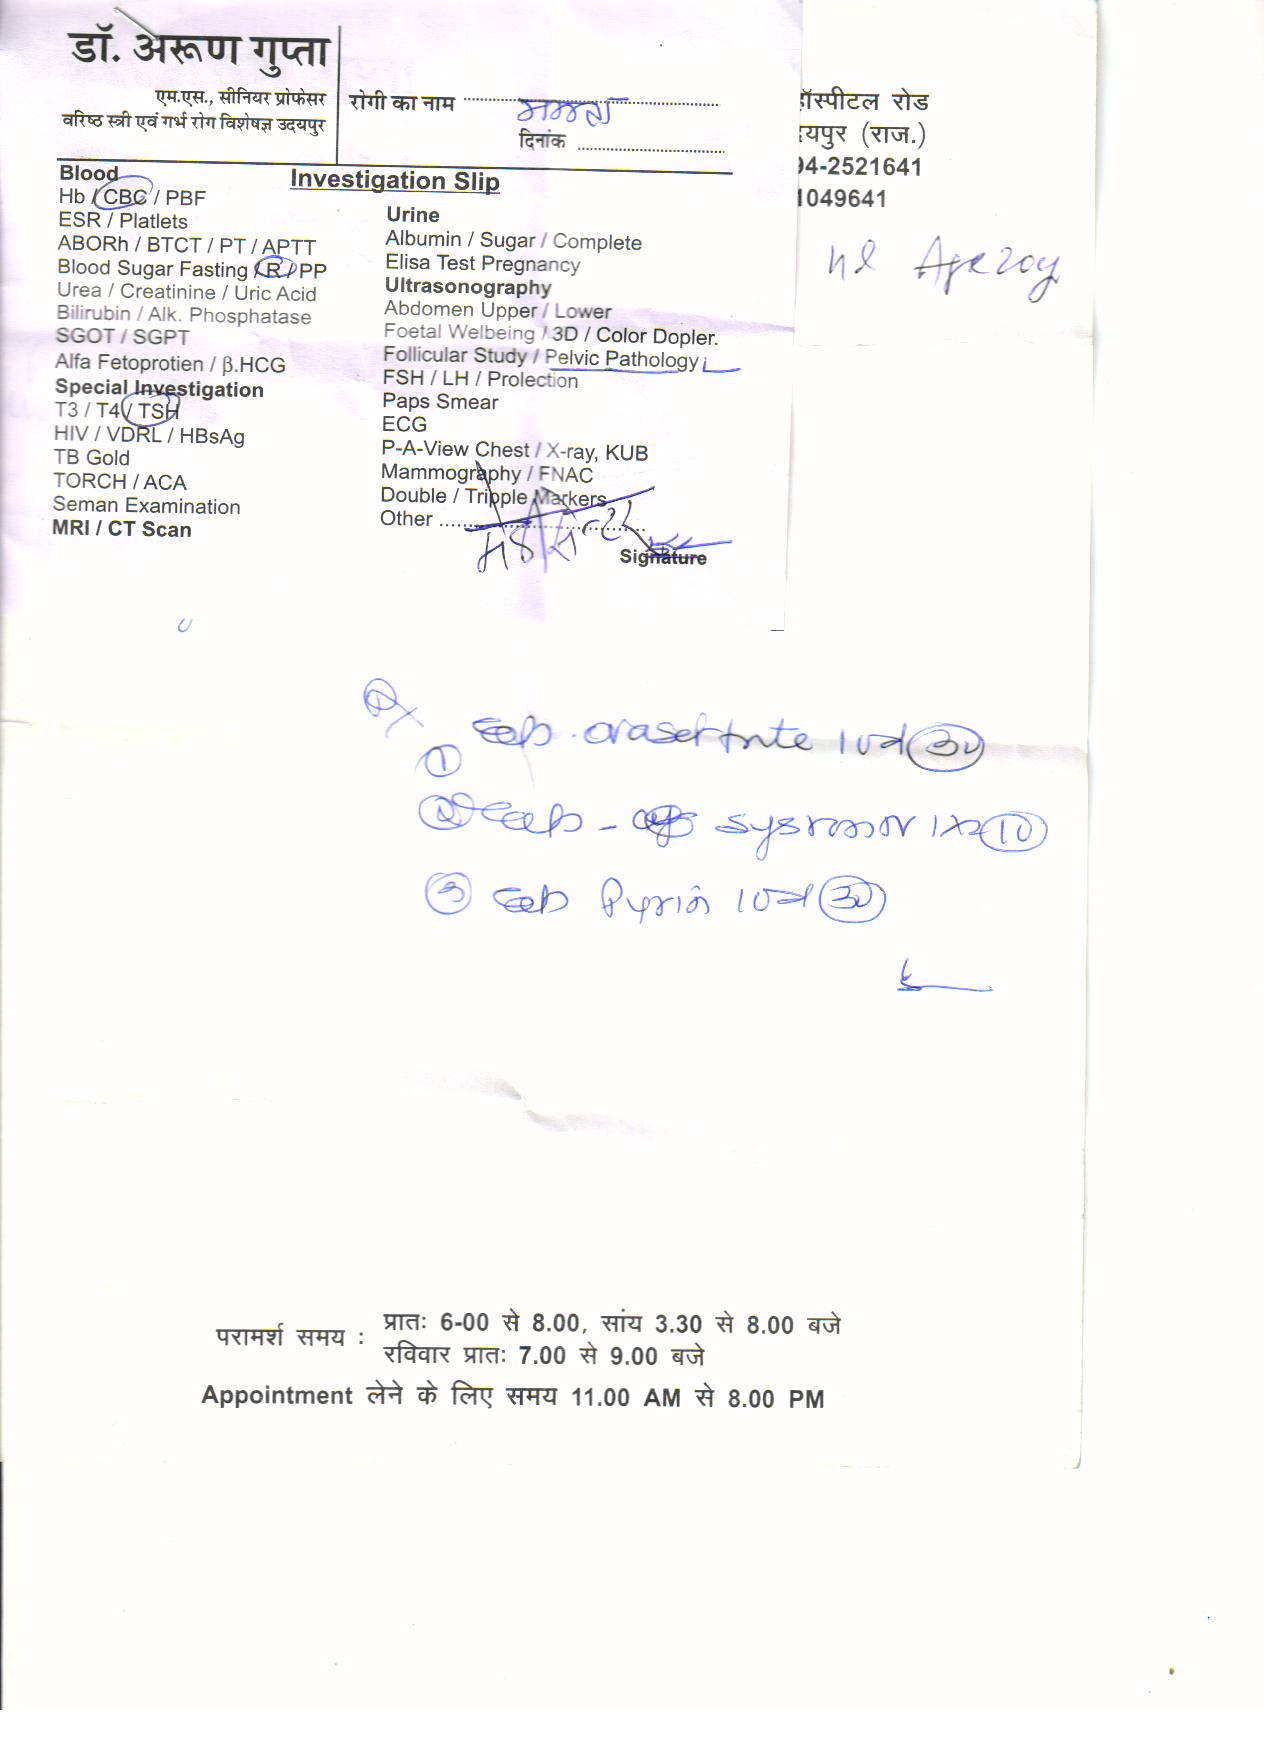 डॉ. अरूण गुप्ता
एम.एस., सीनियर प्रोफेसर
वरिष्ठ स्त्री एवं गर्भ रोग विशेषज्ञ उदयपुर
रोगी का नाम
दिनांक
हॉस्पीटल रोड
दयपुर (राज.)
94-2521641
1049641
Age 20y
Investigation Slip
Blood
Hb / CBC / PBF
ESR / Platlets
ABORh / BTCT / PT / APTT
Blood Sugar Fasting / R / PP
Urea / Creatinine / Uric Acid
Bilirubin / Alk. Phosphatase
SGOT / SGPT
Alfa Fetoprotien / β.HCG
Special Investigation
T3 / T4 / TSH
HIV / VDRL / HBsAg
TB Gold
TORCH / ACA
Seman Examination
MRI / CT Scan
Urine
Albumin / Sugar / Complete
Elisa Test Pregnancy
Ultrasonography
Abdomen Upper / Lower
Foetal Welbeing / 3D / Color Dopler.
Follicular Study / Pelvic Pathology
FSH / LH / Prolection
Paps Smear
ECG
P-A-View Chest / X-ray, KUB
Mammography / FNAC
Double / Tripple Markers
Other
Signature
Rx
① 10d 30
② 1x2 10
③ 10d 30
परामर्श समय : प्रातः 6-00 से 8.00, सांय 3.30 से 8.00 बजे
रविवार प्रातः 7.00 से 9.00 बजे
Appointment लेने के लिए समय 11.00 AM से 8.00 PM